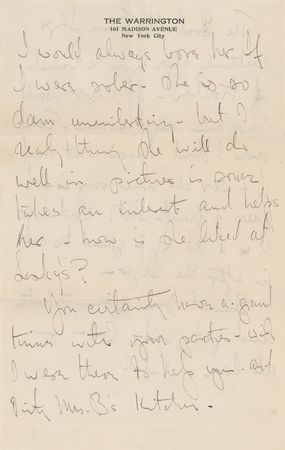 THE WARRINGTON
161 MADISON AVENUE
New York City
I would always bore her if
I were sober - she is so
damn uninteresting - but I
realy think she will do
well in pictures if some
takes an interest and helps
her - how is she liked at
Laskys?
You certainly have a grand
time with your parties - wish
I were there to help you - and
Dirty Mrs. B's Kitchen -